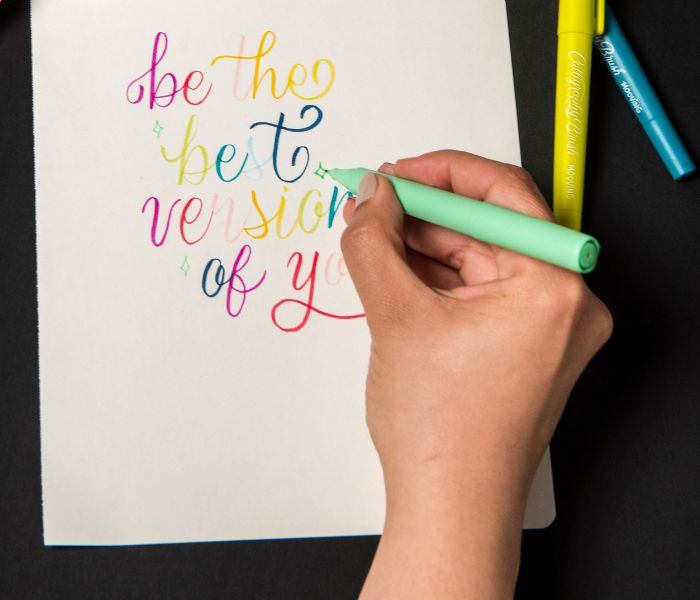 be the
best
version
of yo
Calligraphy Brush MOOVING
y Brush MOOVING